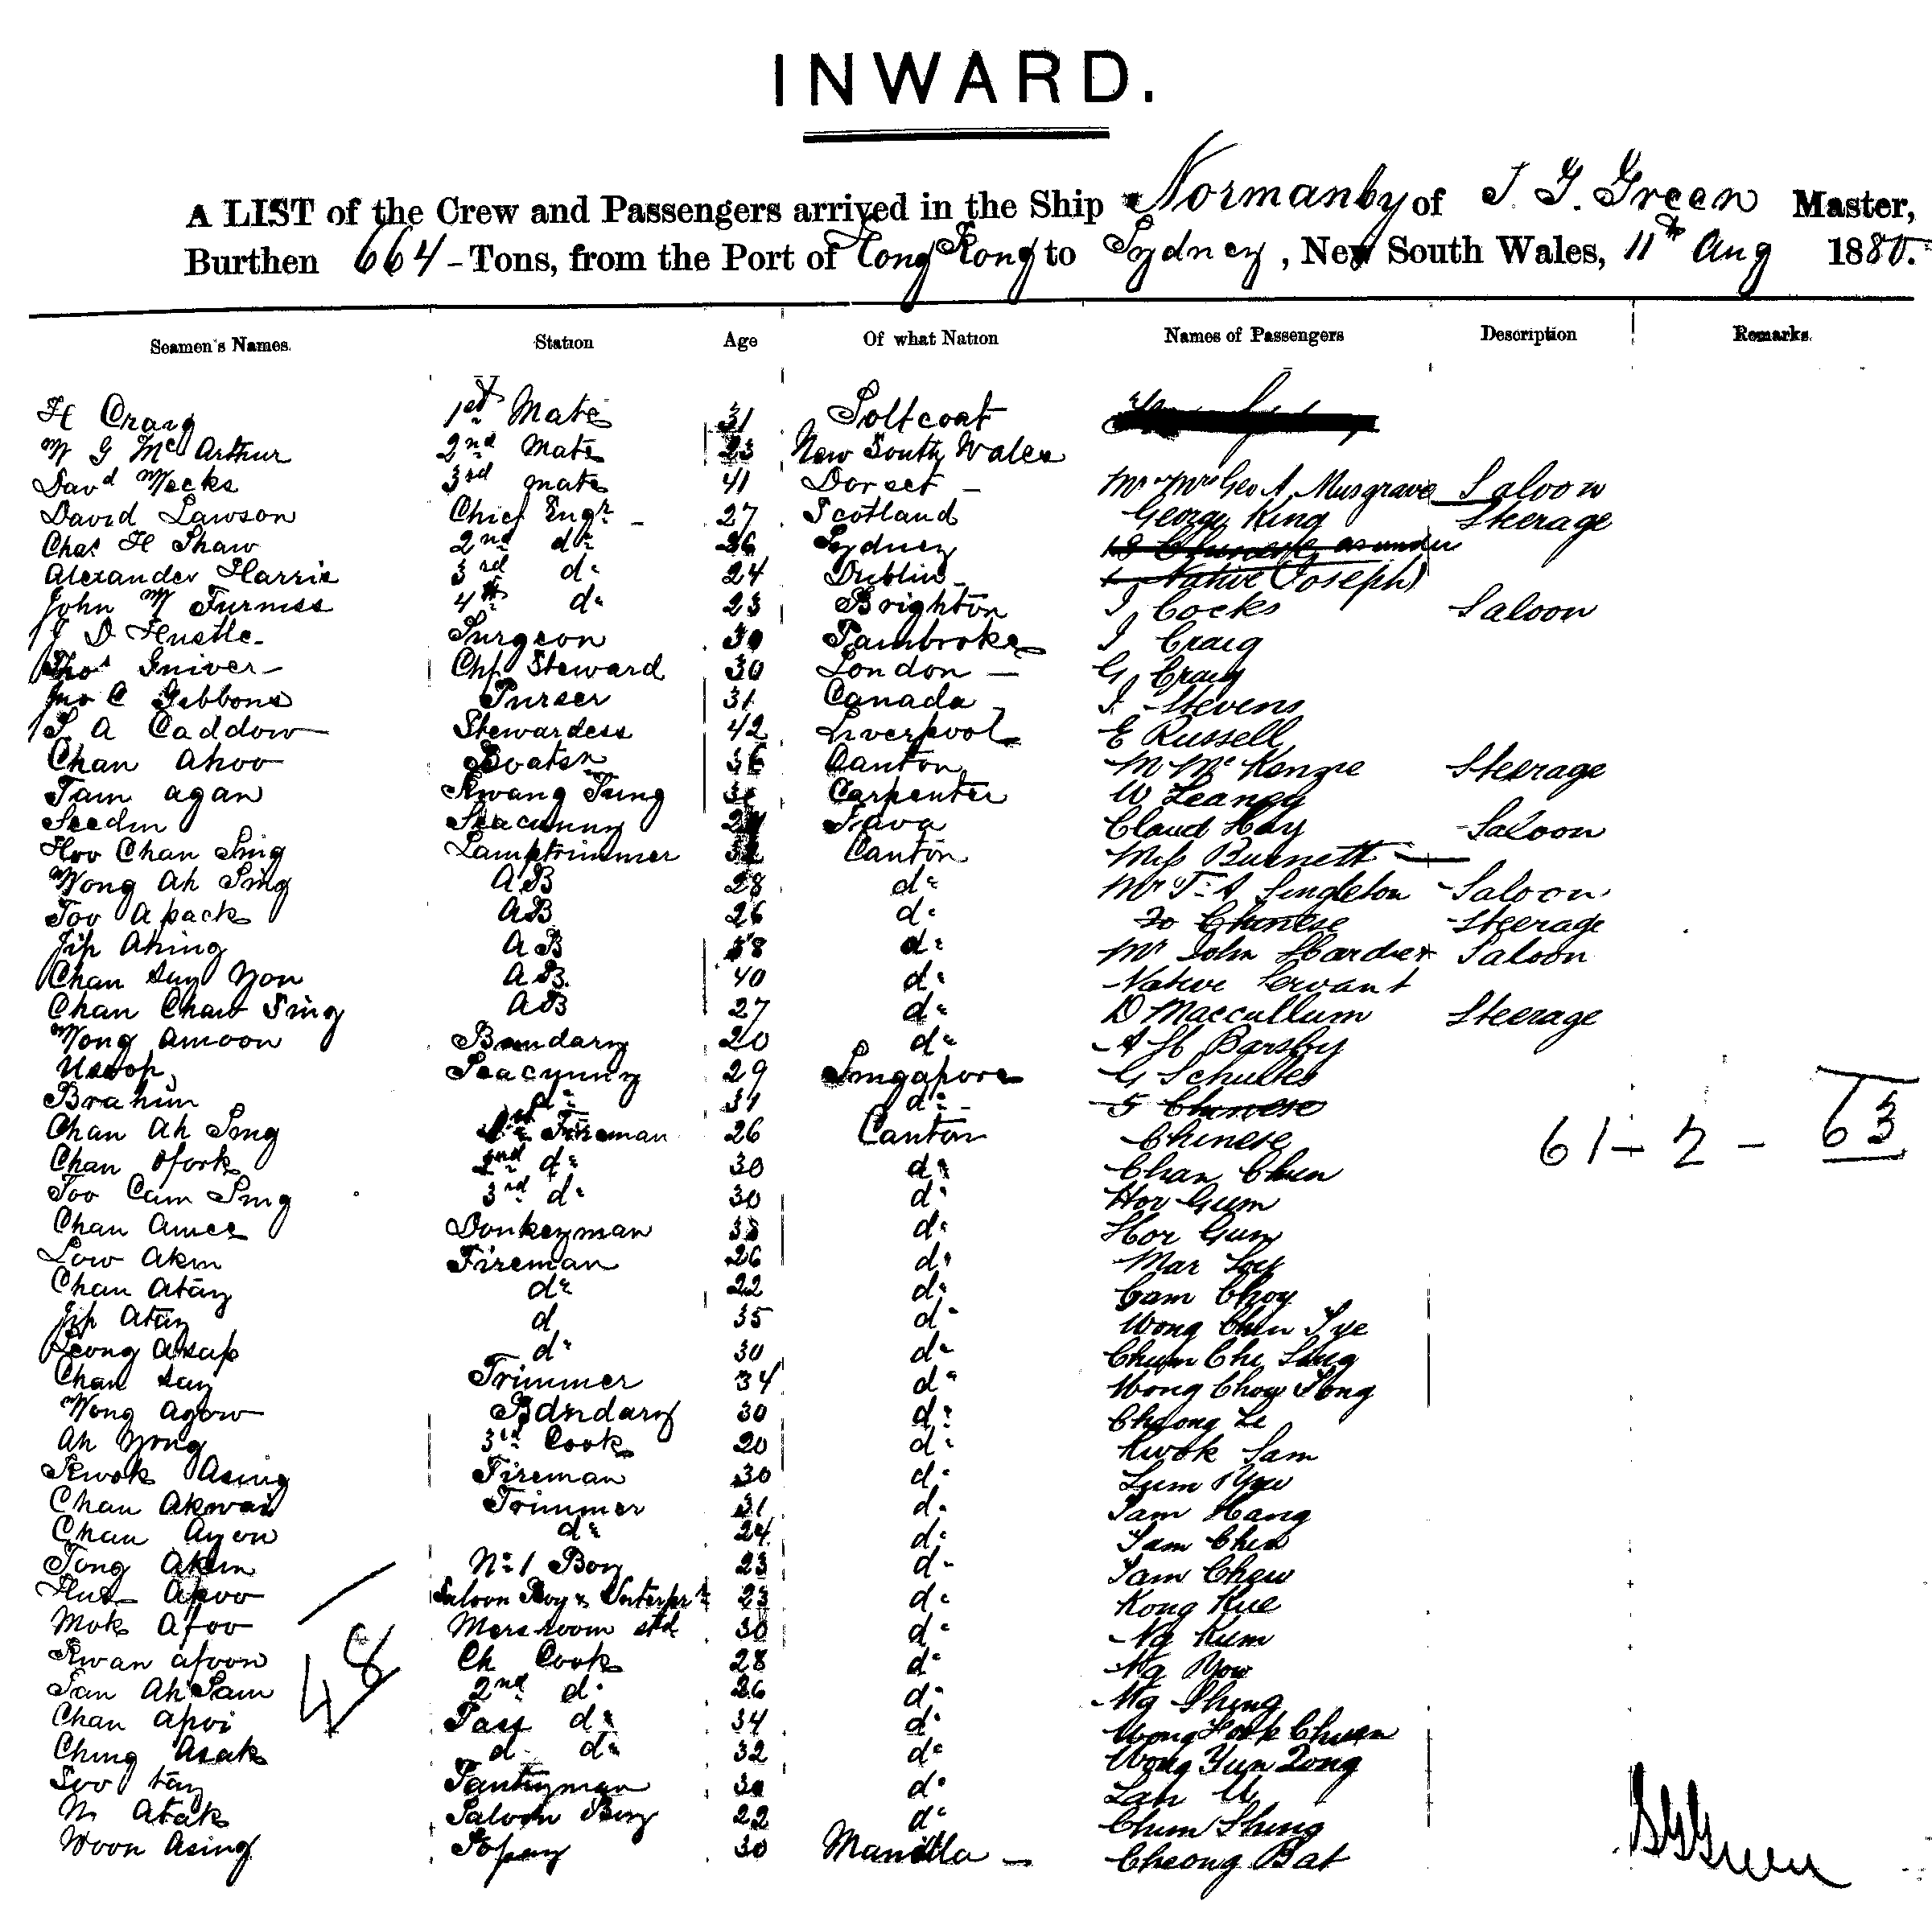 INWARD.
A LIST of the Crew and Passengers arrived in the Ship Normanby of J. G. Green Master,
Burthen 664 - Tons, from the Port of Hong Kong to Sydney, New South Wales, 11th Aug 1880.
Seamen's Names. Station Age Of what Nation Names of Passengers Description Remarks.
H Craig 1st Mate 31 Soltcoat
W G McArthur 2nd Mate 23 New South Wales
Davd Weeks 3rd mate 41 Dorset - Mr & Mrs Geo A Musgrave Saloon
David Lawson Chief Engr - 27 Scotland George King Steerage
Chas H Shaw 2nd do 26 Sydney 18 Chinese as under
Alexander Harris 3rd do 24 Dublin - 1 Native (Joseph)
John W Furness 4th do 23 Brighton J Cocks Saloon
J D Hustle - Surgeon 30 Pambroke J Craig
Thos Gniver - Chf Steward 30 London - G Craig
Jno C Gibbons Purser 31 Canada J Stevens
S A Caddow Stewardess 42 Liverpool E Russell
Chan Ahoo Boatsn 36 Canton M McKenzie Steerage
Tam agan Kwang Tung Carpenter W Leaney
Seedin Seacunny Java Claud Hay Saloon
Hoo Chan Sing Lamptrimmer Canton Miss Burnett
Wong Ah Sing AB 28 do Mr T. A Singleton Saloon
Too Apack AB 26 do 20 Chinese Steerage
Jip Aking AB 38 do Mr John Hardie Saloon
Chan Suy Yon AB. 40 do Native Servant
Chan Chaw Sing AB 27 do D Maccullum Steerage
Wong Amoon Bandary 20 do A H Barsby
Ussop Seacunny 29 Singapore G Schultes
Brahim do 31 do - 5 Chinese
Chan Ah Sing 1st Fireman 26 Canton Chinese 61 - 2 - 63
Chan Afork 2nd do 30 do Chan Chun
Too Cam Sing 3rd do 30 do Hor Gum
Chan Amee Donkeyman 33 do Hor Gum
Low Akin Fireman 26 do Mar Loy
Chan Atay do 22 do Cam Choy
Jip Atay d 35 do Wong Chun Tye
Leong Akap do 30 do Chum Che Sing
Chan Say Trimmer 34 do Wong Chow Tong
Wong Agow Bandary 30 do Cheong Le
Ah Yong 3rd Cook 20 do Kwok Sam
Kwok Asing Fireman 30 do Lum Yow
Chan Akwai Trimmer 31 do Tam Hang
Chan Ayon do 24 do Tam Chin
Tong Akin No 1 Boy 23 do Tam Chew
Apoo Saloon Boy & Interpr 23 do Kong Kue
Mok Afoo Messroom std 30 do Ng Kum
Kwan afoon Ch Cook 28 do Ng Yow
San Ah Sam 2nd do 26 do Ng Shing
48
Chan Apoi Pass do 34 do Wong Hook Chuen
Ching Asak d do 32 do Wong Yun Qong
Soo Tay Pantryman 30 do Lah U
Atak Saloon Boy 22 do Chum Shing
Woon Asing Topay 30 Manilla - Cheong Bat
J G Green